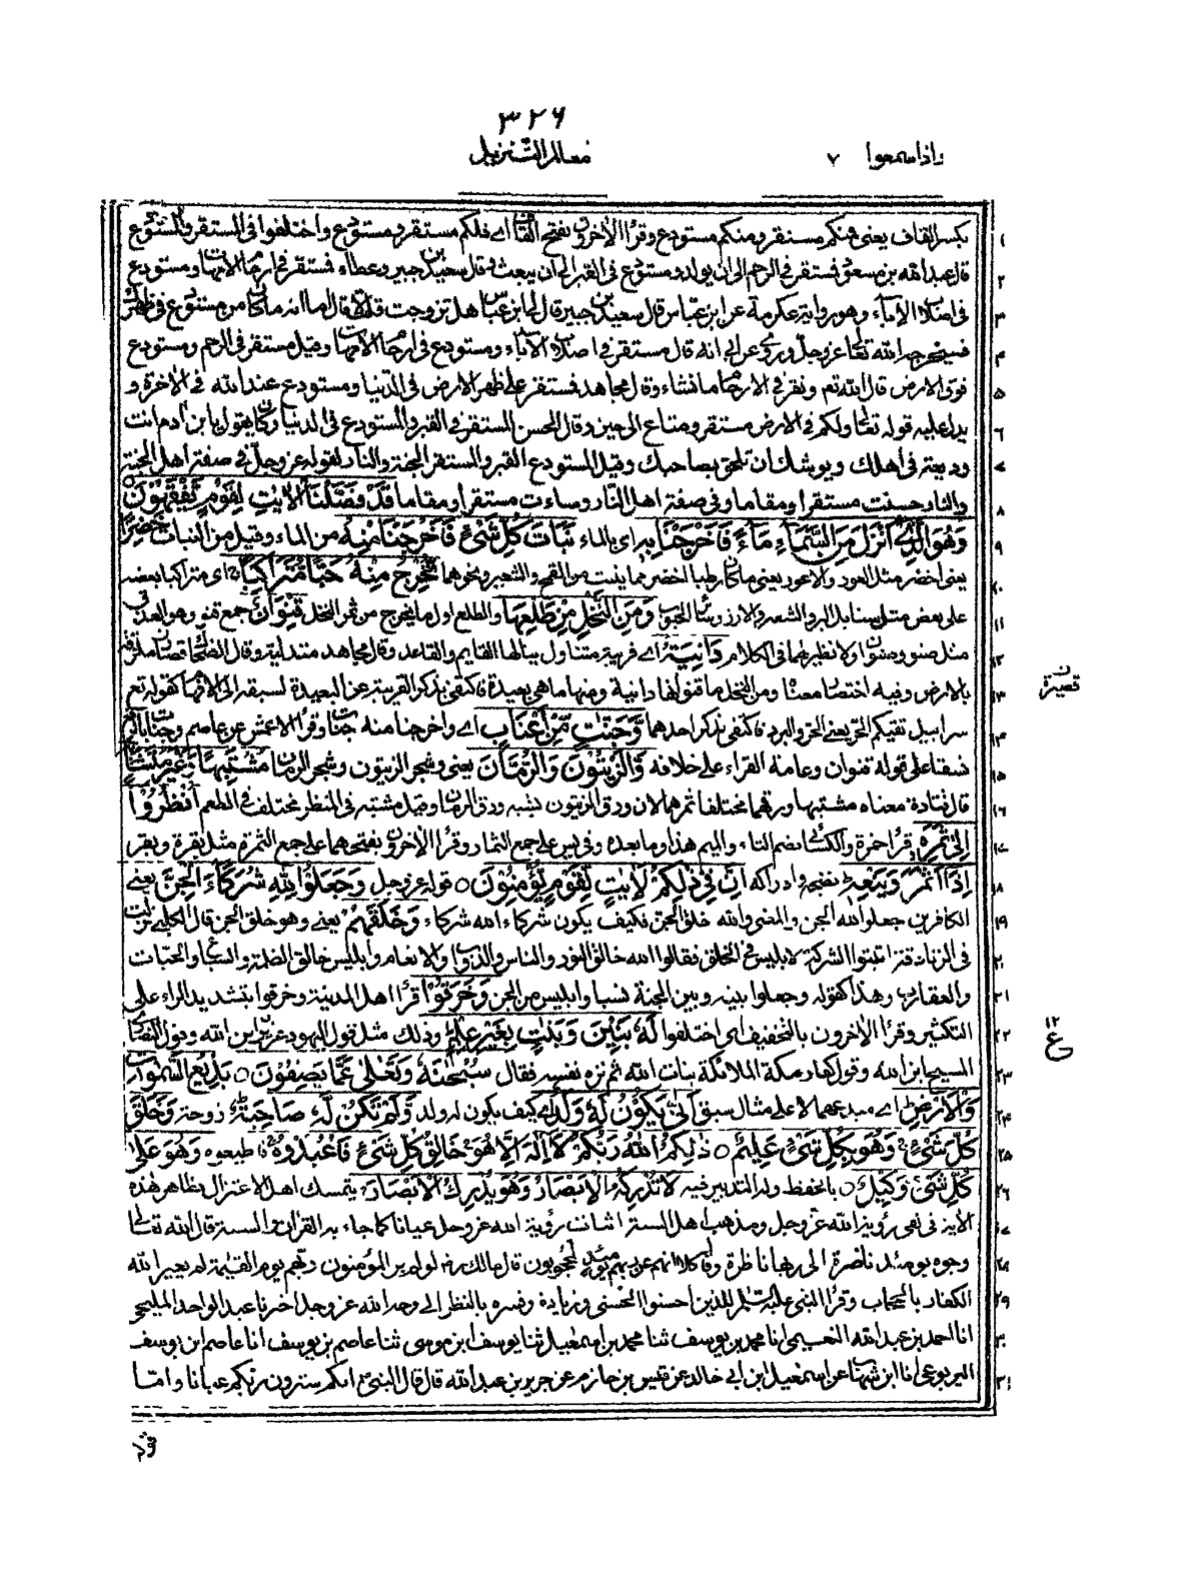 ٣٢٦
واذا سمعوا ٧
معالم التنزيل
بكسر القاف يعنى فمنكم مستقر ومنكم مستودع وقرأ الاخرون بفتح القاف اے فلكم مستقر ومستودع واختلفوا فى المستقر والمستودع
قال عبد الله بن مسعود فمستقر فى الرحم الى ان يولد ومستودع فى القبر الى ان يبعث وقال سعيد بن جبير وعطاء فمستقر فى ارحام الامهات ومستودع
فى اصلاب الاباء وهو رواية عكرمة عن ابن عباس قال سعيد بن جبير قال لى ابن عباس هل تزوجت قلت لا قال اما انه ما كان من مستودع فى ظهرك
فسيخرجه الله تعالى عز وجل وروى عن ابى انه قال مستقر فى اصلاب الاباء ومستودع فى ارحام الامهات وقيل مستقر فى الرحم ومستودع
فوق الارض قال الله تعم ونقر فى الارحام ما نشاء وقال مجاهد فمستقر على ظهر الارض فى الدنيا ومستودع عند الله فى الاخرة و
يدل عليه قوله تعالى ولكم فى الارض مستقر ومتاع الى حين وقال الحسن المستقر فى القبر والمستودع فى الدنيا وكان يقول يا بن ادم انت
وديعة فى اهلك ويوشك ان تلحق بصاحبك وقيل المستودع القبر والمستقر الجنة والنار لقوله عز وجل فى صفة اهل الجنة
والنار حسنت مستقرا ومقاما وفى صفة اهل النار وساءت مستقرا ومقاما قَدْ فَصَّلْنَا الْاٰيٰتِ لِقَوْمٍ يَّفْقَهُوْنَ
وَهُوَ الَّذِيْ اَنْزَلَ مِنَ السَّمَآءِ مَآءً فَاَخْرَجْنَا بِهٖ اى بالماء نَبَاتَ كُلِّ شَيْءٍ فَاَخْرَجْنَا مِنْهُ من الماء وقيل من النبات خَضِرًا
يعنى اخضر مثل العور والاعور يعنى ما كان رطبا اخضر مما ينبت من القمح والشعير ونحوهما نُّخْرِجُ مِنْهُ حَبًّا مُّتَرَاكِبًا اى متراكبا بعضه
على بعض مثل سنابل البر والشعير والارز وسائر الحبوب وَمِنَ النَّخْلِ مِنْ طَلْعِهَا والطلع اول ما يخرج من ثمر النخل قِنْوَانٌ جمع قنو وهو العذق
مثل صنو وصنوان ولا نظير لهما فى الكلام دَانِيَةٌ اے قريبة متناول ينالها القايم والقاعد وقال مجاهد متدلية وقال الضحاك قصار ملتزقة
بالارض وفيه اختصار معناه ومن النخل ما قنوانها دانية ومنها ما هى بعيدة فاكتفى بذكر القريبة عن البعيدة لسبقه الى الافهام كقوله تعم
سرابيل تقيكم الحر يعنى الحر والبرد فاكتفى بذكر احدهما وَّجَنّٰتٍ مِّنْ اَعْنَابٍ اے واخرجنا منه جنات وقرأ الاعمش عن عاصم وجنات بالرفع
نسقا على قوله قنوان وعامة القراء على خلافه وَّالزَّيْتُوْنَ وَالرُّمَّانَ يعنى وشجر الزيتون وشجر الرمان مُشْتَبِهًا وَّغَيْرَ مُتَشَابِهٍ
قال قتادة معناه مشتبها ورقهما مختلفا ثمرهما لان ورق الزيتون يشبه ورق الرمان وقيل مشتبه فى المنظر مختلف فى الطعم اُنْظُرُوْا
اِلٰى ثَمَرِهٖ قرأ حمزة والكسائى بضم الثاء والميم هذا وما بعده وفى يس على جمع الثمار وقرأ الاخرون بفتحهما على جمع الثمرة مثل بقرة وبقر
اِذَآ اَثْمَرَ وَيَنْعِهٖ نضجه وادراكه اِنَّ فِيْ ذٰلِكُمْ لَاٰيٰتٍ لِّقَوْمٍ يُّؤْمِنُوْنَ ○ قوله عز وجل وَجَعَلُوْا لِلّٰهِ شُرَكَآءَ الْجِنَّ يعنى
الكافرين جعلوا لله الجن والمعنى والله خلق الجن فكيف يكون شركاء الله شركاء وَخَلَقَهُمْ يعنى وهو خلق الجن قال الكلبى نزلت
فى الزنادقة اثبتوا الشركة لابليس فى الخلق فقالوا الله خالق النور والناس والدواب والانعام وابليس خالق الظلمة والسباع والحيات
والعقارب وهذا كقوله وجعلوا بينه وبين الجنة نسبا وابليس من الجن وَخَرَقُوْا قرأ اهل المدينة وخرقوا بتشديد الراء على
التكثير وقرأ الاخرون بالتخفيف اى اختلقوا لَهٗ بَنِيْنَ وَبَنٰتٍ بِغَيْرِ عِلْمٍ وذلك مثل قول اليهود عزير ابن الله وقول النصارى
المسيح ابن الله وقول كفار مكة الملائكة بنات الله ثم نزه نفسه فقال سُبْحٰنَهٗ وَتَعٰلٰى عَمَّا يَصِفُوْنَ ○ بَدِيْعُ السَّمٰوٰتِ
وَالْاَرْضِ اے مبدعهما لا على مثال سبق اَنّٰى يَكُوْنُ لَهٗ وَلَدٌ اى كيف يكون له ولد وَّلَمْ تَكُنْ لَّهٗ صَاحِبَةٌ زوجة وَخَلَقَ
كُلَّ شَيْءٍ وَهُوَ بِكُلِّ شَيْءٍ عَلِيْمٌ ○ ذٰلِكُمُ اللّٰهُ رَبُّكُمْ لَآ اِلٰهَ اِلَّا هُوَ خَالِقُ كُلِّ شَيْءٍ فَاعْبُدُوْهُ فاطيعوه وَهُوَ عَلٰى
كُلِّ شَيْءٍ وَّكِيْلٌ ○ بالحفظ وله التدبير فيه لَا تُدْرِكُهُ الْاَبْصَارُ وَهُوَ يُدْرِكُ الْاَبْصَارَ يتمسك اهل الاعتزال بظاهر هذه
الاية فى نفى رؤية الله عز وجل ومذهب اهل السنة اثبات رؤية الله عز وجل عيانا كما جاء به القرأن والسنة قال الله تعالى
وجوه يومئذ ناضرة الى ربها ناظرة وقال كلا انهم عن ربهم يومئذ لمحجوبون قال مالك رض لو لم ير المؤمنون ربهم يوم القيمة لم يعير الله
الكفار بالحجاب وقرأ النبى عليه السلام للذين احسنوا الحسنى وزيادة وفسره بالنظر الى وجه الله عز وجل اخرنا عبد الواحد المليحى
انا احمد بن عبد الله النعيمى انا محمد بن يوسف ثنا محمد بن اسمعيل ثنا يوسف ابن موسى ثنا عاصم بن يوسف انا عاصم ابن يوسف
اليربوعى انا ابن شهاب عن اسمعيل ابن ابى خالد عن قيس بن حازم عن جرير بن عبد الله قال قال النبى م انكم سترون ربكم عيانا واما
قصيرة ن
١٢
ع